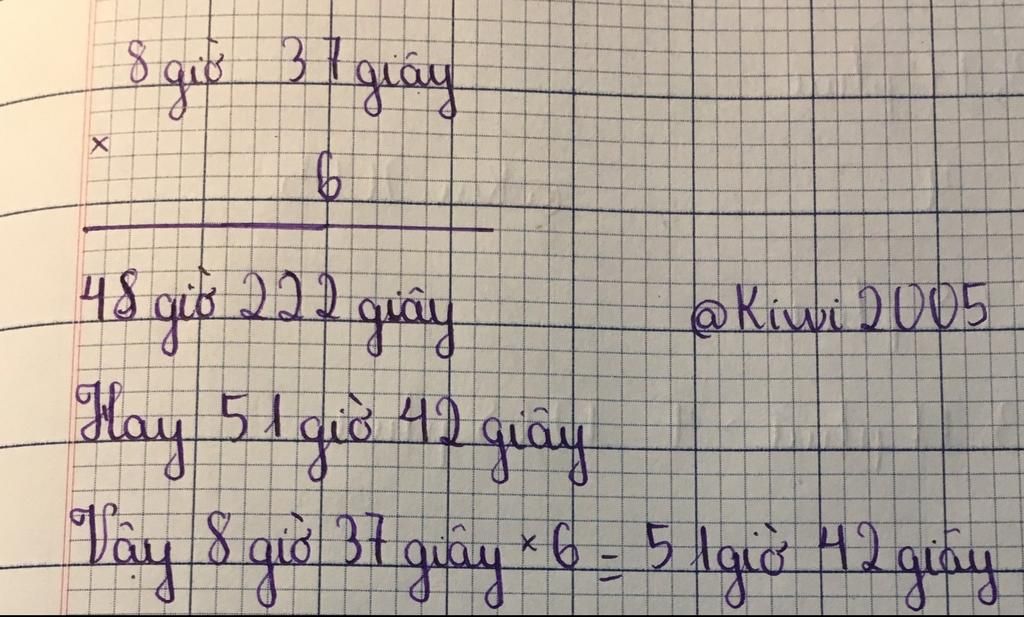 8 giờ 37 giây
×
6
48 giờ 222 giây
@Kiwi2005
Hay 51 giờ 42 giây
Vậy 8 giờ 37 giây × 6 = 51 giờ 42 giây